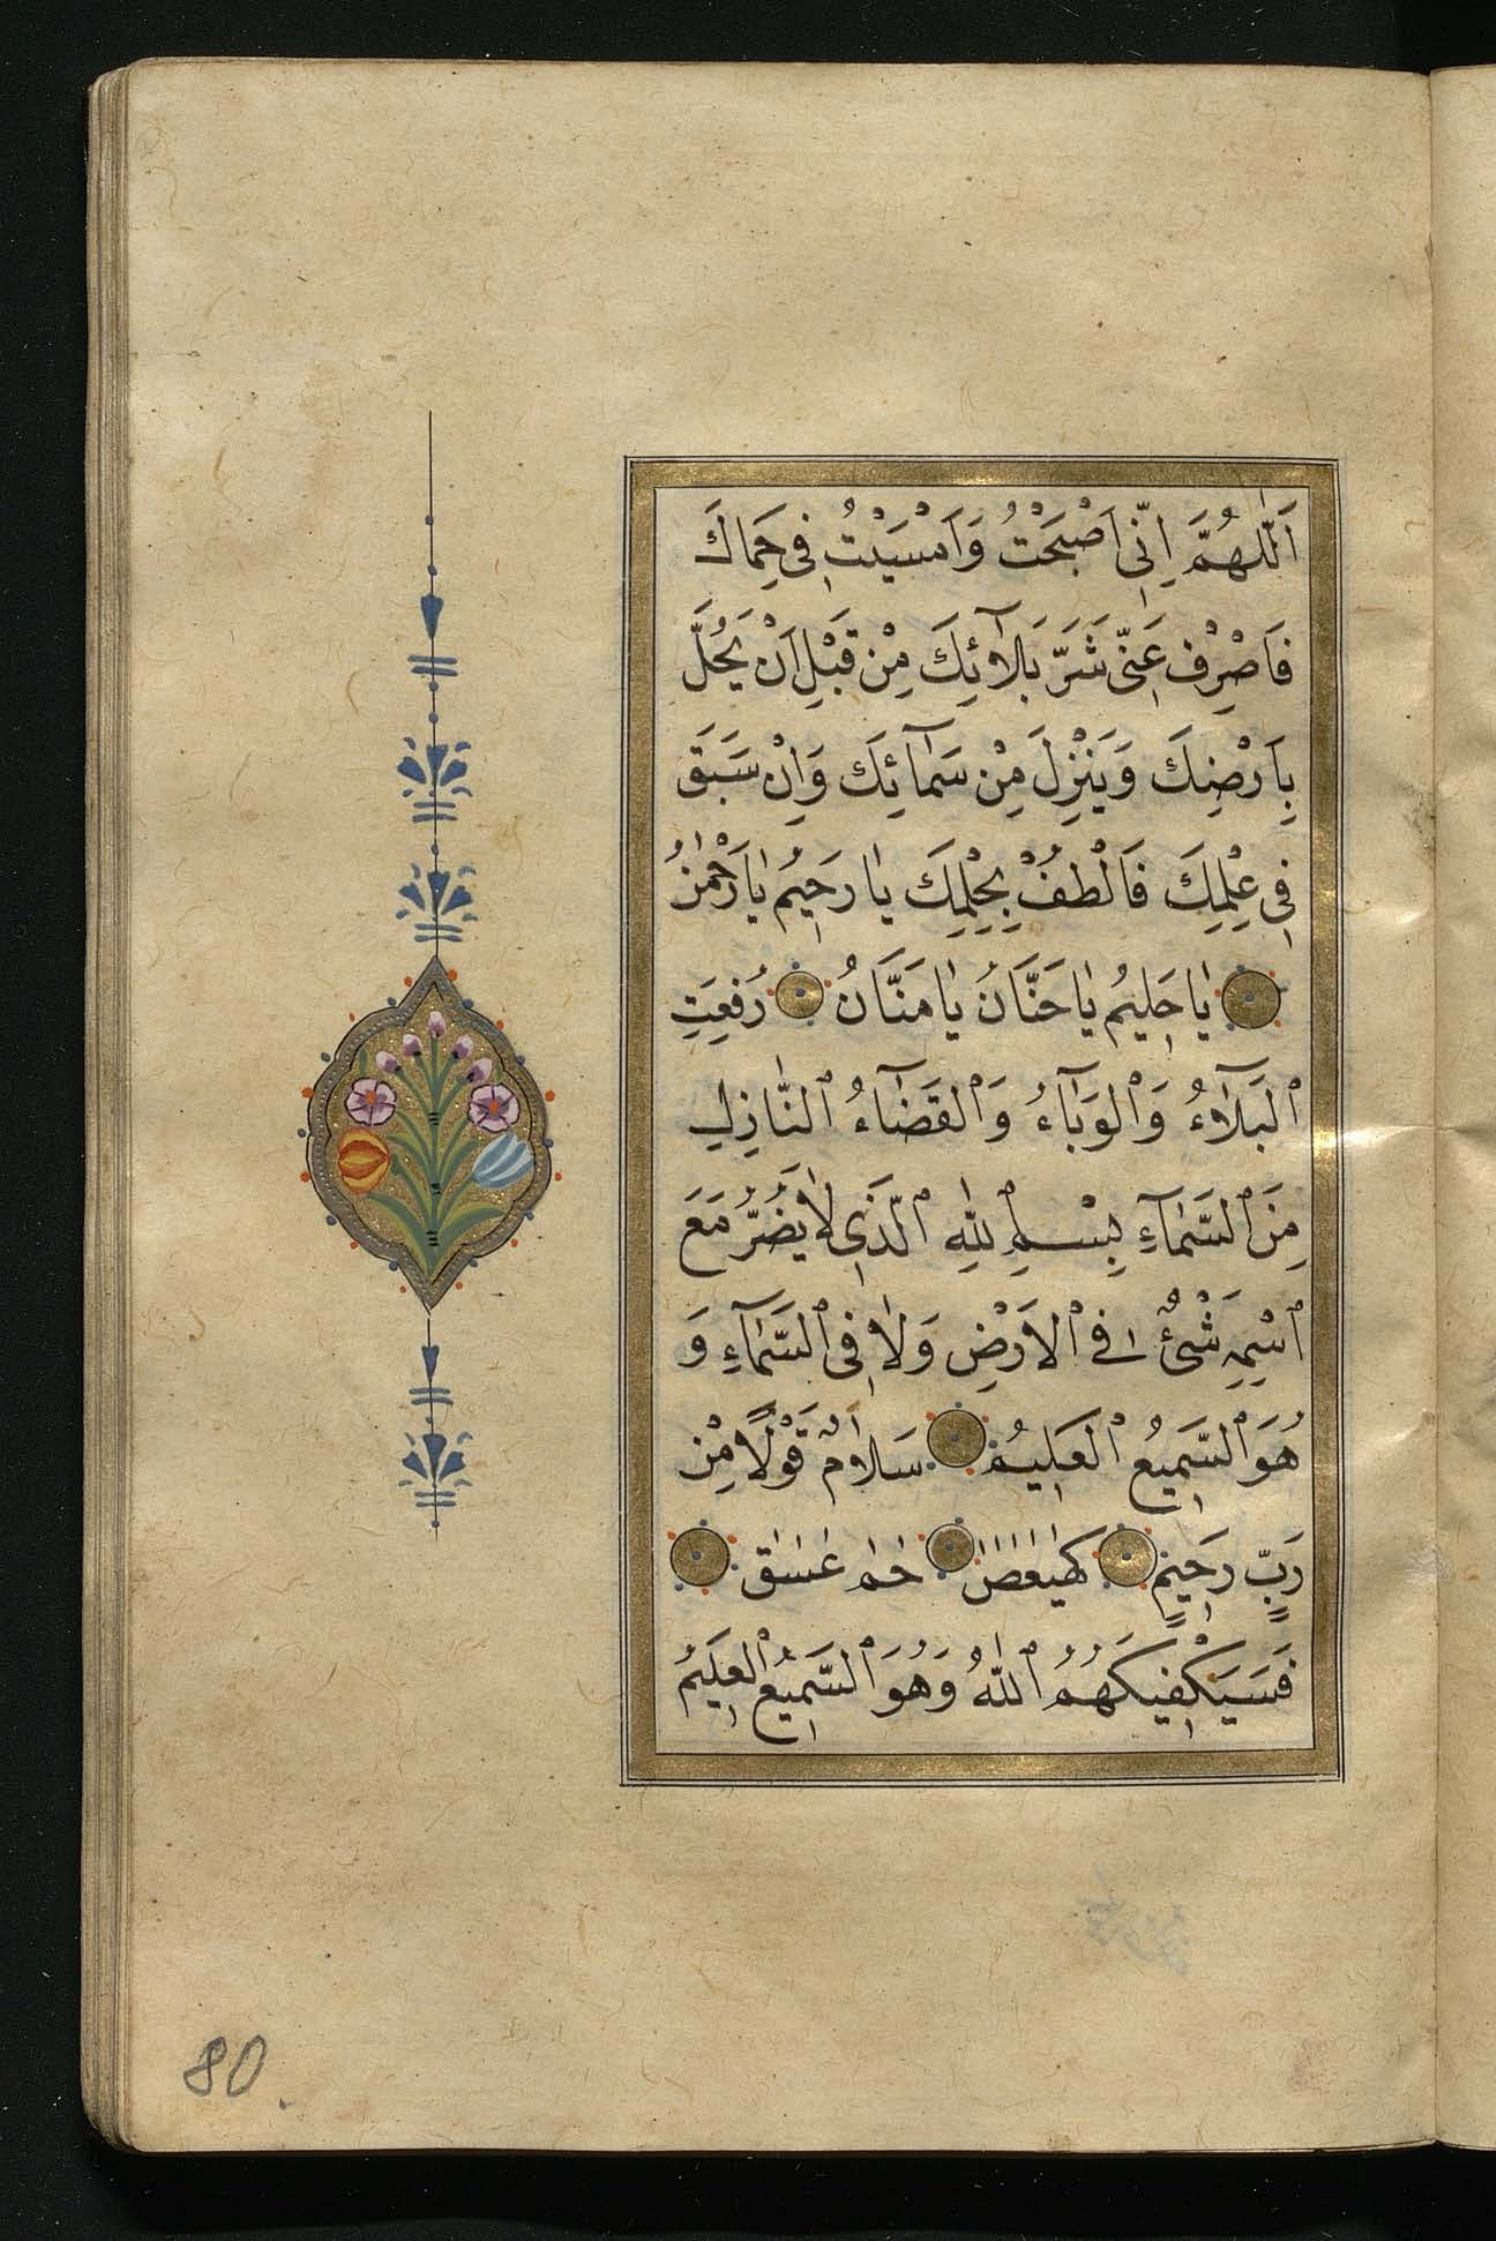 اَللّٰهُمَّ اِنِّى اَصْبَحْتُ وَاَمْسَيْتُ فِى حِمَاكَ
فَاصْرِفْ عَنِّى شَرَّ بَلَآئِكَ مِنْ قَبْلِ اَنْ يَحُلَّ
بِاَرْضِكَ وَيَنْزِلَ مِنْ سَمَآئِكَ وَاِنْ سَبَقَ
فِى عِلْمِكَ فَالْطُفْ بِحِلْمِكَ يَا رَحِيمُ يَا رَحْمٰنُ
يَا حَلِيمُ يَا حَنَّانُ يَا مَنَّانُ رُفِعَتِ
الْبَلَآءُ وَالْوَبَآءُ وَالْقَضَآءُ النَّازِلِ
مِنَ السَّمَآءِ بِسْمِ اللّٰهِ الَّذِى لَا يَضُرُّ مَعَ
اسْمِهِ شَىْءٌ فِى الْاَرْضِ وَلَا فِى السَّمَآءِ وَ
هُوَ السَّمِيعُ الْعَلِيمُ سَلَامٌ قَوْلًا مِنْ
رَبٍّ رَحِيمٍ كٓهٰيٰعٓصٓ حٰمٓ عٓسٓقٓ
فَسَيَكْفِيكَهُمُ اللّٰهُ وَهُوَ السَّمِيعُ الْعَلِيمُ
80